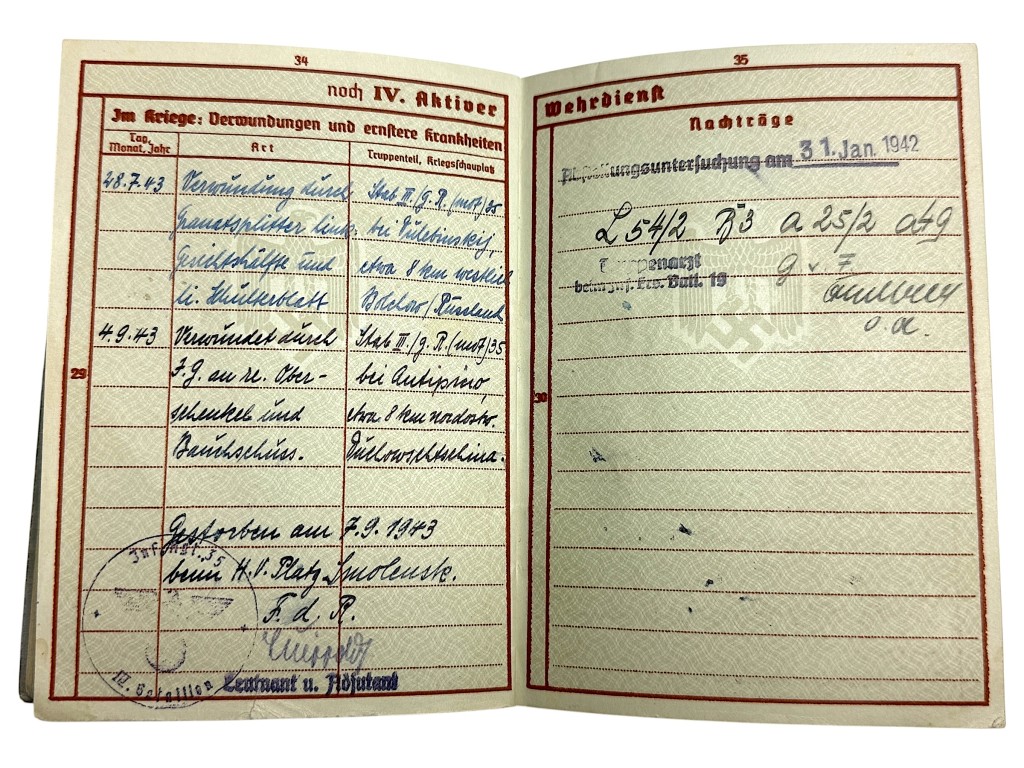 34
noch IV. Aktiver
Im Kriege: Verwundungen und ernstere Krankheiten
Tag, Monat, Jahr
Art
Truppenteil, Kriegsschauplatz
28.7.43 Verwundung durch Stab III./G.R.(mot)35
Granatsplitter link. bei
Gesichtshälfte und etwa 8 km westlich
li. Schulterblatt Bolchow/Russland
4.9.43 Verwundet durch Stab III./G.R.(mot)35
I.G. an re. Ober- bei
schenkel und etwa 8 km nordostw.
Bauchschuss.
29
Gestorben am 7.9.1943
beim H.V. Platz Smolensk.
F. d. R.
Leutnant u. Adjutant
Inf. Rgt. 35
Bataillon
35
Wehrdienst
Nachträge
Abstellungsuntersuchung am 31. Jan. 1942
L 54/2 B 3 a 25/2 a 49
Truppenarzt
beim Inf. Ers. Batl. 19
g v F
30